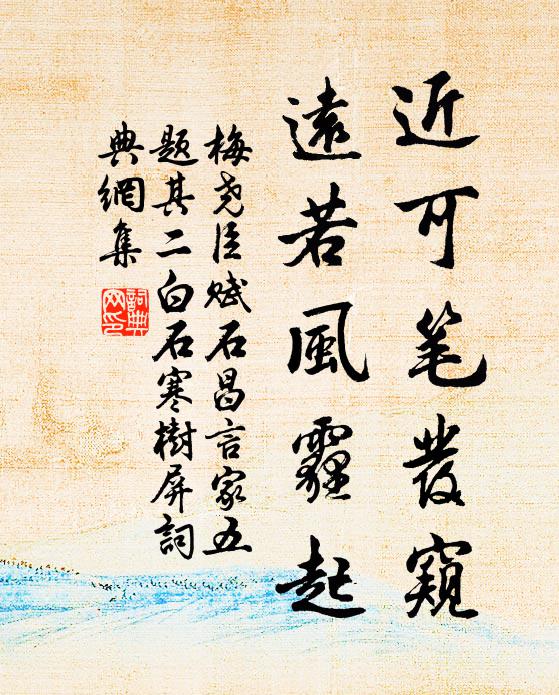 近可笔發窺
遠若風霾起
梅堯臣賦石昌言家五
題其二白石寒樹屏詞
典網集
詞典
网印